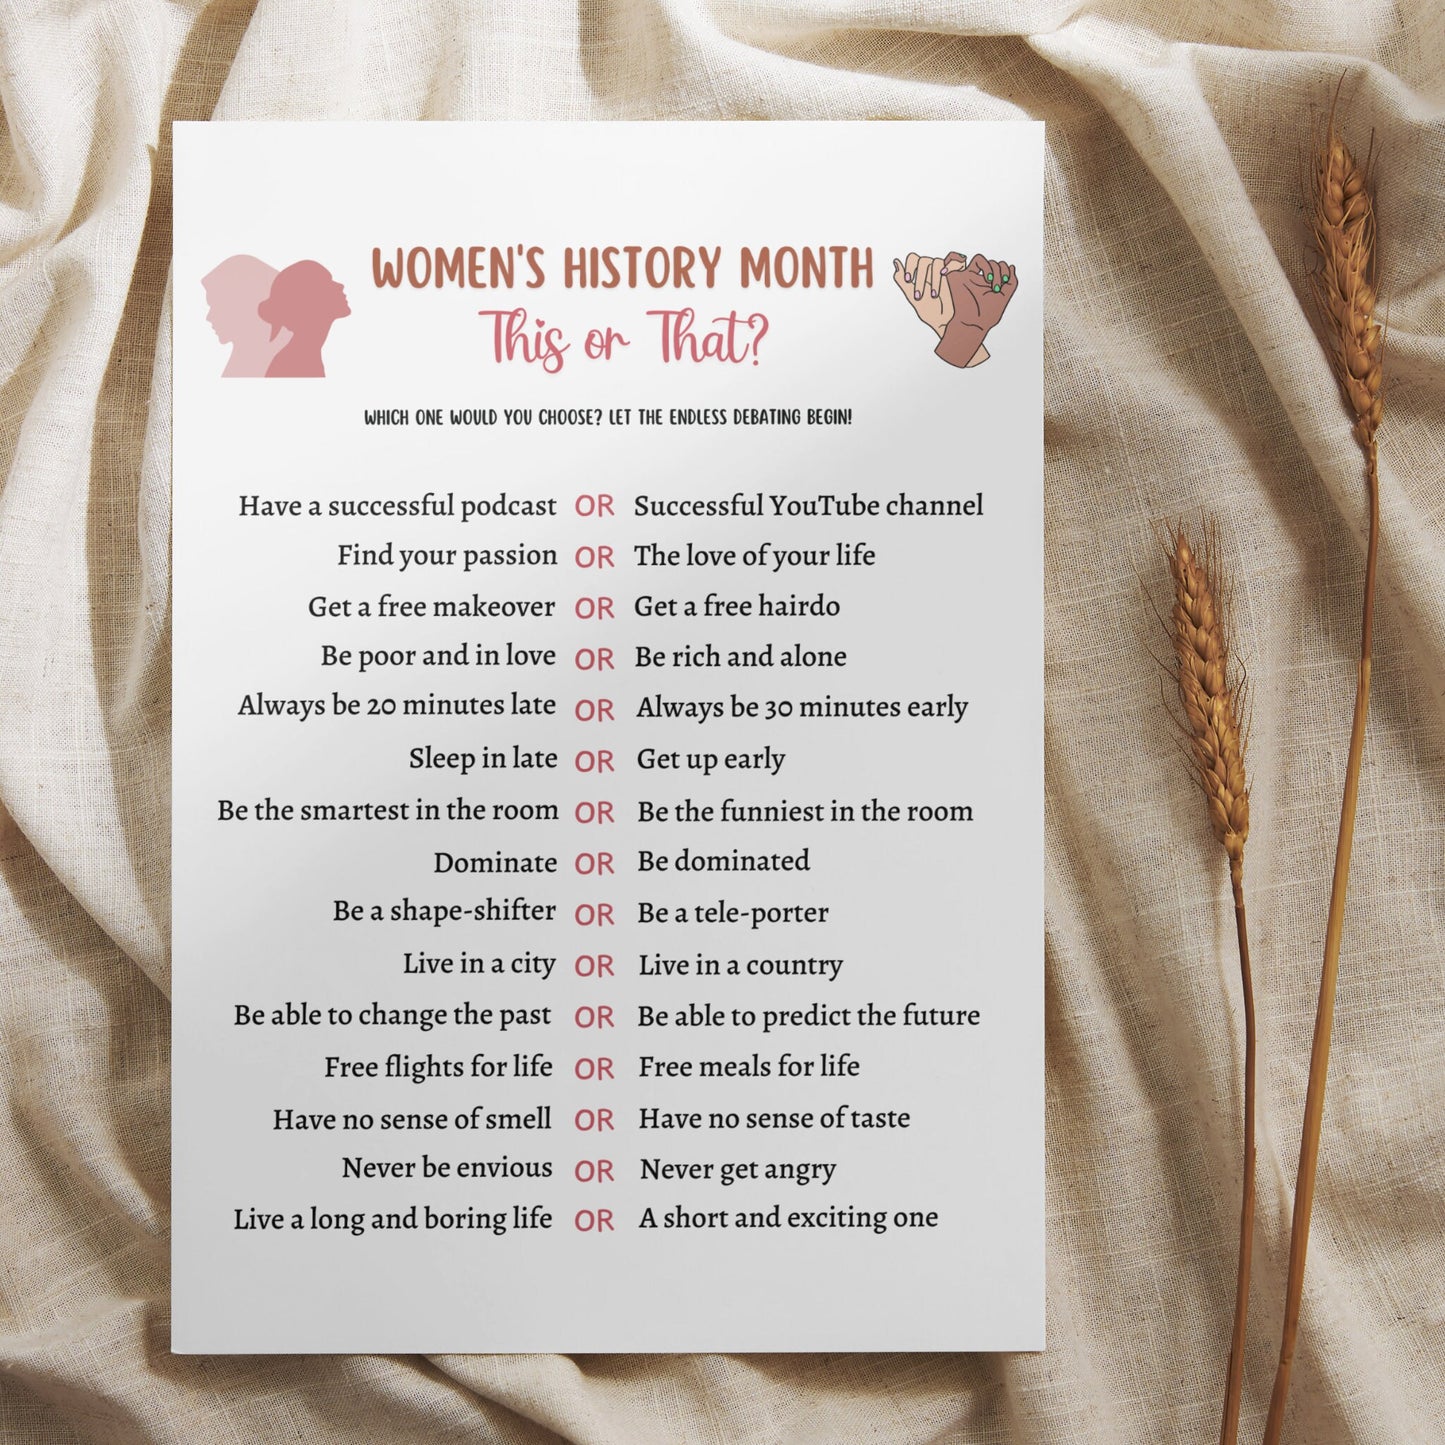 WOMEN'S HISTORY MONTH
This or That?
WHICH ONE WOULD YOU CHOOSE? LET THE ENDLESS DEBATING BEGIN!
Have a successful podcast OR Successful YouTube channel
Find your passion OR The love of your life
Get a free makeover OR Get a free hairdo
Be poor and in love OR Be rich and alone
Always be 20 minutes late OR Always be 30 minutes early
Sleep in late OR Get up early
Be the smartest in the room OR Be the funniest in the room
Dominate OR Be dominated
Be a shape-shifter OR Be a tele-porter
Live in a city OR Live in a country
Be able to change the past OR Be able to predict the future
Free flights for life OR Free meals for life
Have no sense of smell OR Have no sense of taste
Never be envious OR Never get angry
Live a long and boring life OR A short and exciting one